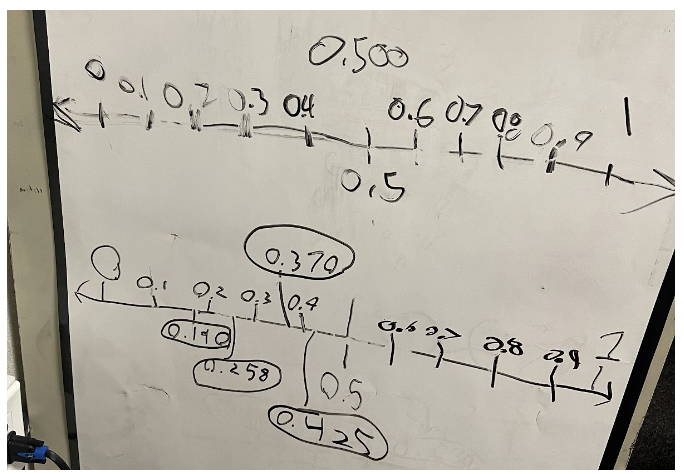 0.500
0 0.1 0.2 0.3 0.4 0.6 0.7 0.8 0.9 1
0.5
0.370
0 0.1 0.2 0.3 0.4 0.6 0.7 0.8 0.9 1
0.190
0.258
0.5
0.425